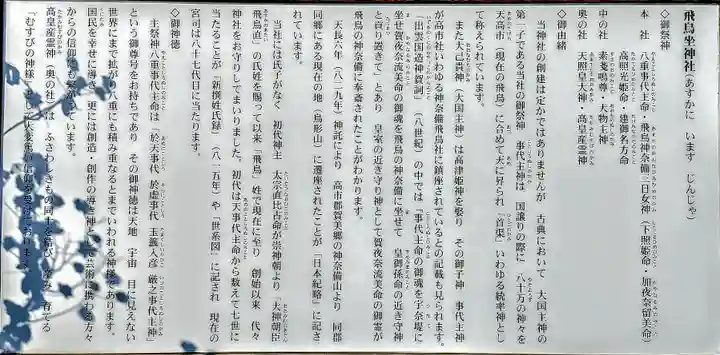 飛鳥坐神社(あすかに います じんじゃ)
◇御祭神
本 社 八重事代主命・飛鳥神奈備三日女神(下照姫命・加夜奈留美命)
高照光姫命・建御名方命
中の社 素戔鳴尊・大物主神
奥の社 天照皇大神・高皇産霊神
◇御由緒
当神社の創建は定かではありませんが 古典において 大国主神の
第一子である当社の御祭神 事代主神は 国譲りの際に 八十万の神々を
天高市(現在の飛鳥)に合めて天に昇られ「首渠」いわゆる統率神とし
て称えられています。
また大己貴神(大国主神)は高津姫神を娶り その御子神 事代主神
が高市社いわゆる神奈備飛鳥社に鎮座されているとの記載も見られます。
「出雲国造神賀詞」(八世紀)の中では「事代主命の御魂を宇奈堤に
坐せ賀夜奈流美命の御魂を飛鳥の神奈備に坐せて 皇御孫命の近き守神
と貢り置きて」とあり 皇室の近き守り神として賀夜奈流美命の御霊が
飛鳥の神奈備に奉斎されたことがわかります。
天長六年(八二九年)神託により 高市郡賀美郷の神奈備山より 同郡
同郷にある現在の地(鳥形山)に遷座されたことが「日本紀略」に記さ
れています。
当社には氏子がなく 初代神主 太宗直比古命が崇神朝より 大神朝臣
飛鳥直」の氏姓を賜って以来「飛鳥」姓で現在に至り 創始以来 代々
神社をお守りしてまいりました。初代は天事代主命から数えて七世に
あたることが「新撰姓氏録」(八一五年)や「世系図」に記され 現在の
宮司は八十七代目に当たります。
◇御神徳
主祭神八重事代主命は「於天事代 於虚事代 玉籤入彦 厳之事代主神」
という御尊号をお持ちであり その御神徳は天地 宇宙 目に見えない
世界にまで拡がり八重にも積み重なるとまでいわれる神様であります。
国民を幸せに導き 更には創造・創作の導き神として芸術に携わる方々
からの信仰にも繋がっています。
高皇産霊神(奥の社)は ふさわしきもの同士を結び 産み 育てる
「むすびの神様」として人々の篤い信仰を受けております。